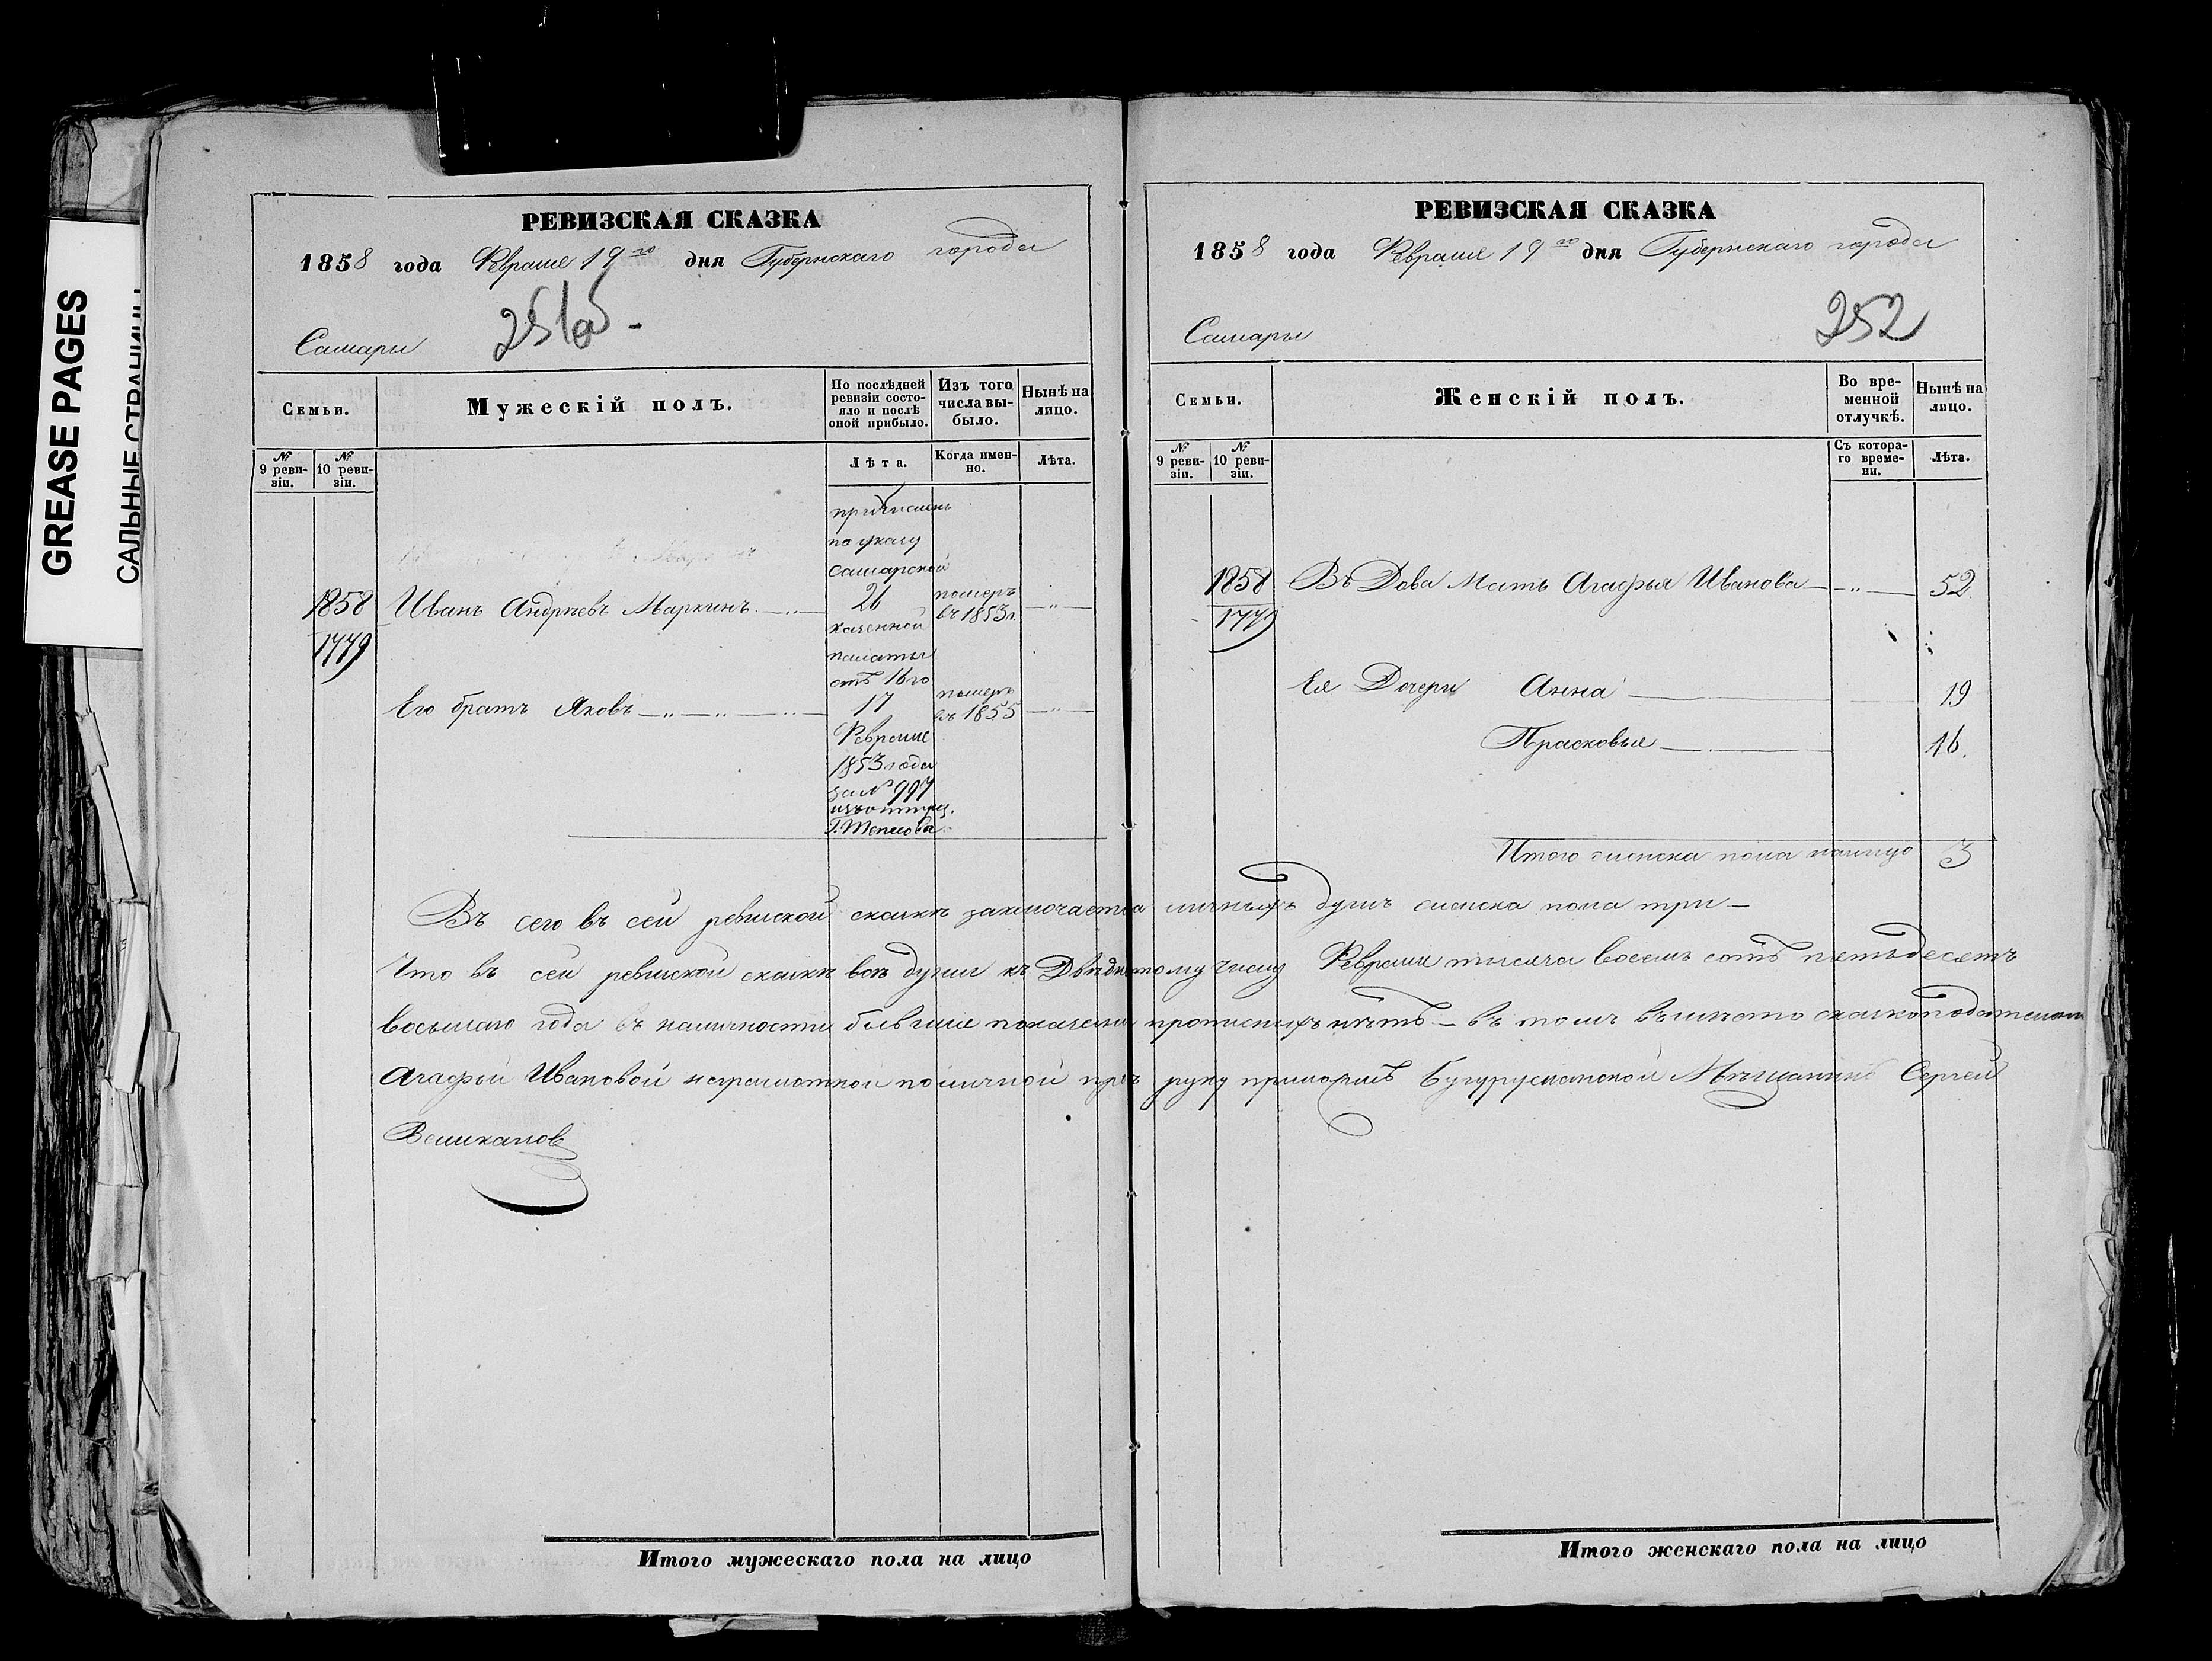 GREASE PAGES
САЛЬНЫЕ СТРАНИЦЫ
РЕВИЗСКАЯ СКАЗКА
1858 года Февраля 19го дня Губернскаго города
Самары
251об
Семьи.
Мужескій полъ.
По послѣдней ревизіи состояло и послѣ оной прибыло.
Изъ того числа выбыло.
Нынѣ на лицо.
№ 9 ревизіи.
№ 10 ревизіи.
Лѣта.
Когда именно.
Лѣта.
причисленъ
по указу
самарской
1858 Иванъ Андреевъ Маркинъ 21 померъ въ 1853 г.
казенной
1779
палаты
отъ 16го
Его братъ Яковъ 17 померъ въ 1855
Февраля
1853 года
за № 997
РЕВИЗСКАЯ СКАЗКА
1858 года Февраля 19го дня Губернскаго города
Самары
252
Семьи.
Женскій полъ.
Во временной отлучкѣ.
Нынѣ на лицо.
№ 9 ревизіи.
№ 10 ревизіи.
Съ котораго времени.
Лѣта.
1858 Въдова Мать Агафья Иванова 52
1779
Ея Дочери Анна 19
Прасковья 16.
Итого женска пола налицо 3
Въ сего въ сей ревиской скаскѣ заключается личныхъ душъ женска пола три
Что въ сей ревиской скаскѣ всѣ души къ Девідному числу Февраля тысяча восемь сотъ петьдесятъ
восьмаго года въ наличности бывшие показаны прописныхъ нѣтъ – въ томъ въместо скаскоподательницы
Агафьи Ивановой неграмотной по личной прозбѣ руку приложилъ Бугурусланской Мѣщанинъ Сергей
Великанов
Итого мужескаго пола на лицо
Итого женскаго пола на лицо